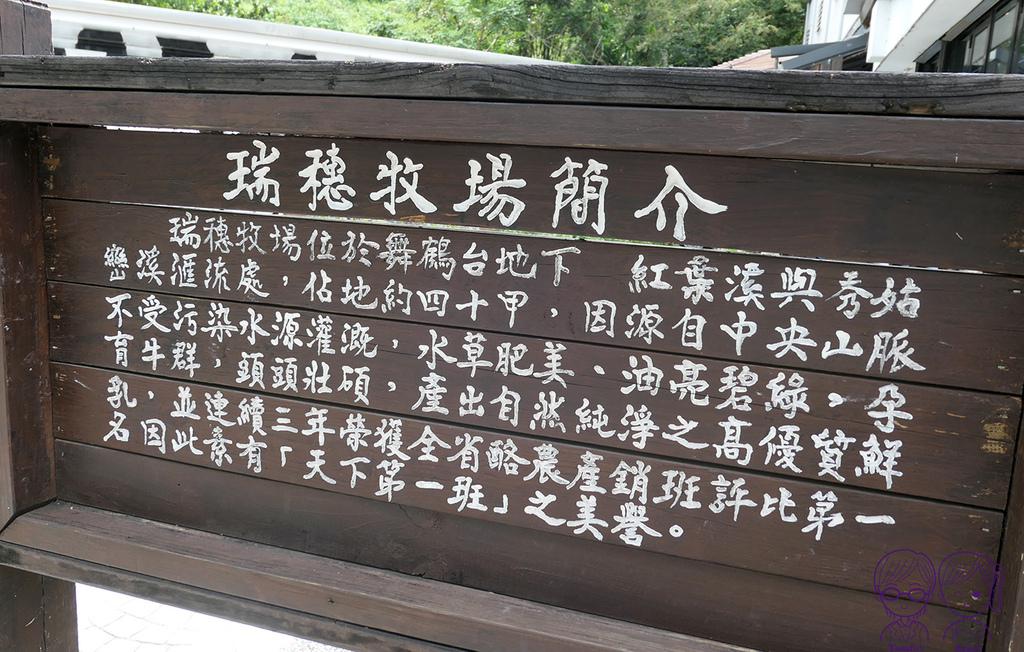 瑞穗牧場簡介
瑞穗牧場位於舞鶴台地下　紅葉溪與秀姑
巒溪滙流處，佔地約四十甲，因源自中央山脈
不受污染水源灌溉，水草肥美、油亮碧綠。孕
育牛群，頭頭壯碩，產出自然純淨之高優質鮮
乳，並連續三年榮獲全省酪農產銷班評比第一
名因此素有「天下第一班」之美譽。